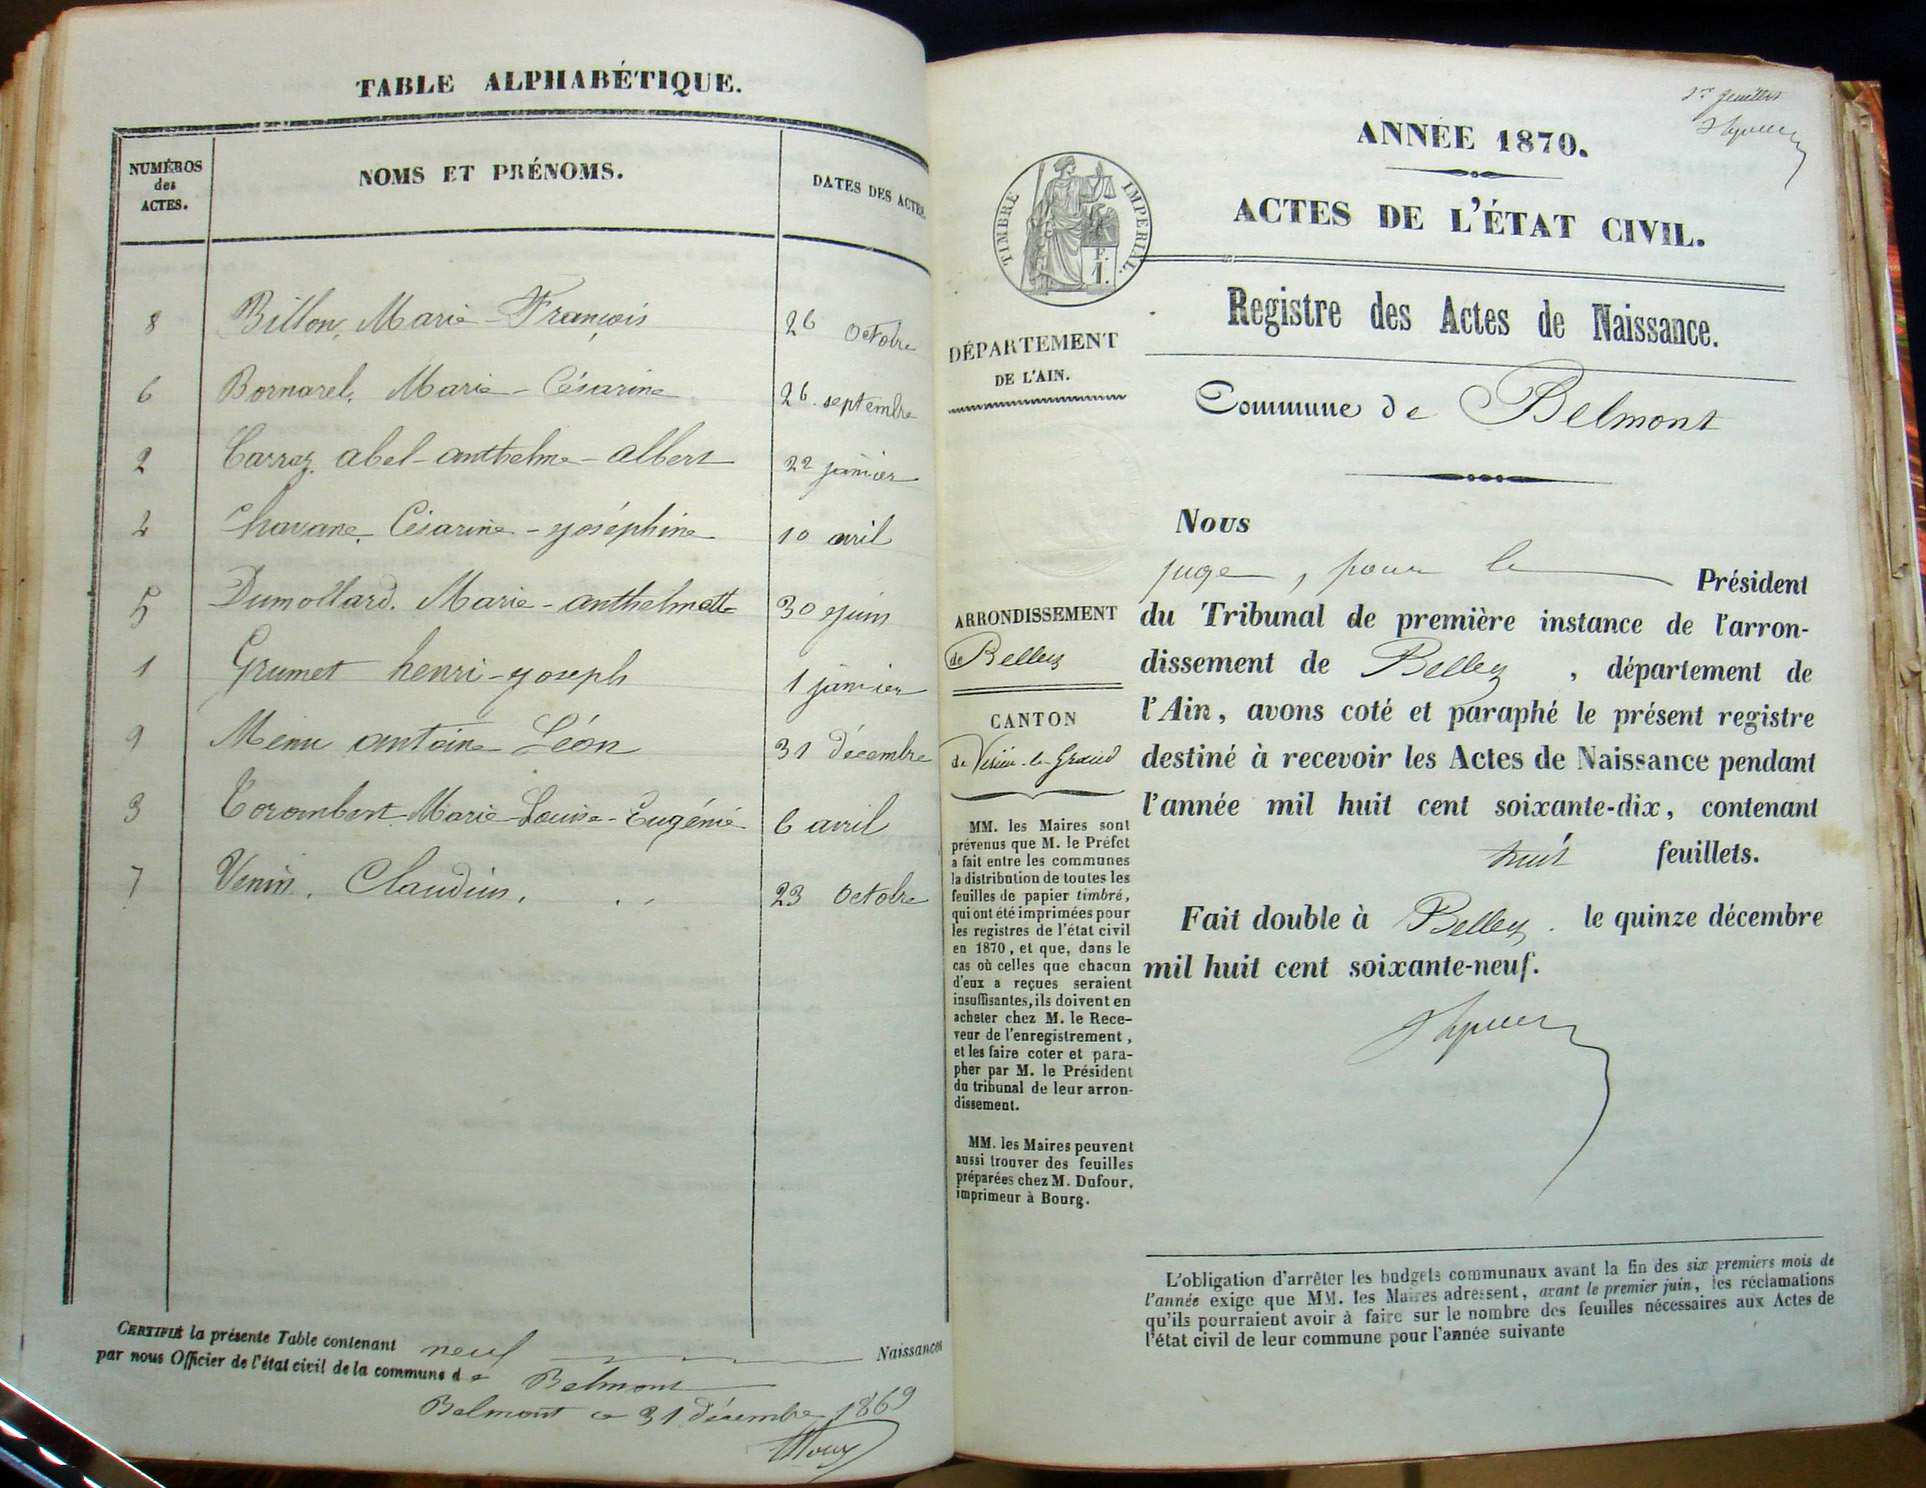 TABLE ALPHABÉTIQUE.
NUMÉROS
des
ACTES.
NOMS ET PRÉNOMS.
DATES DES ACTES.
8 Billon, Marie-François 26 octobre
6 Bornarel, Marie-Césarine 26 septembre
2 Carraz, abel-anthelme-albert 22 janvier
4 Chavane, Césarine-joséphine 10 avril
5 Dumollard, Marie-anthelmette 30 juin
1 Grumet henri-joseph 1 janvier
9 Menu antoine Léon 31 décembre
3 Corombert Marie-Louise-Eugénie 6 avril
7 Venin, Claudius, 23 octobre
CERTIFIÉ la présente Table contenant neuf Naissances
par nous Officier de l'état civil de la commune de Belmont
Belmont ce 31 décembre 1869
1er feuillet
ANNÉE 1870.
ACTES DE L'ÉTAT CIVIL.
TIMBRE IMPÉRIAL
F.
1.
Registre des Actes de Naissance.
DÉPARTEMENT
DE L'AIN.
Commune de Belmont
Nous
juge, pour le Président
du Tribunal de première instance de l'arron-
dissement de Belley, département de
l'Ain, avons coté et paraphé le présent registre
destiné à recevoir les Actes de Naissance pendant
l'année mil huit cent soixante-dix, contenant
huit feuillets.
Fait double à Belley. le quinze décembre
mil huit cent soixante-neuf.
ARRONDISSEMENT
de Belley
CANTON
de Virieu-le-Grand
MM. les Maires sont
prévenus que M. le Préfet
a fait entre les communes
la distribution de toutes les
feuilles de papier timbré,
qui ont été imprimées pour
les registres de l'état civil
en 1870, et que, dans le
cas où celles que chacun
d'eux a reçues seraient
insuffisantes, ils doivent en
acheter chez M. le Rece-
veur de l'enregistrement,
et les faire coter et para-
pher par M. le Président
du tribunal de leur arron-
dissement.
MM. les Maires peuvent
aussi trouver des feuilles
préparées chez M. Dufour,
imprimeur à Bourg.
L'obligation d'arrêter les budgets communaux avant la fin des six premiers mois de
l'année exige que MM. les Maires adressent, avant le premier juin, les réclamations
qu'ils pourraient avoir à faire sur le nombre des feuilles nécessaires aux Actes de
l'état civil de leur commune pour l'année suivante